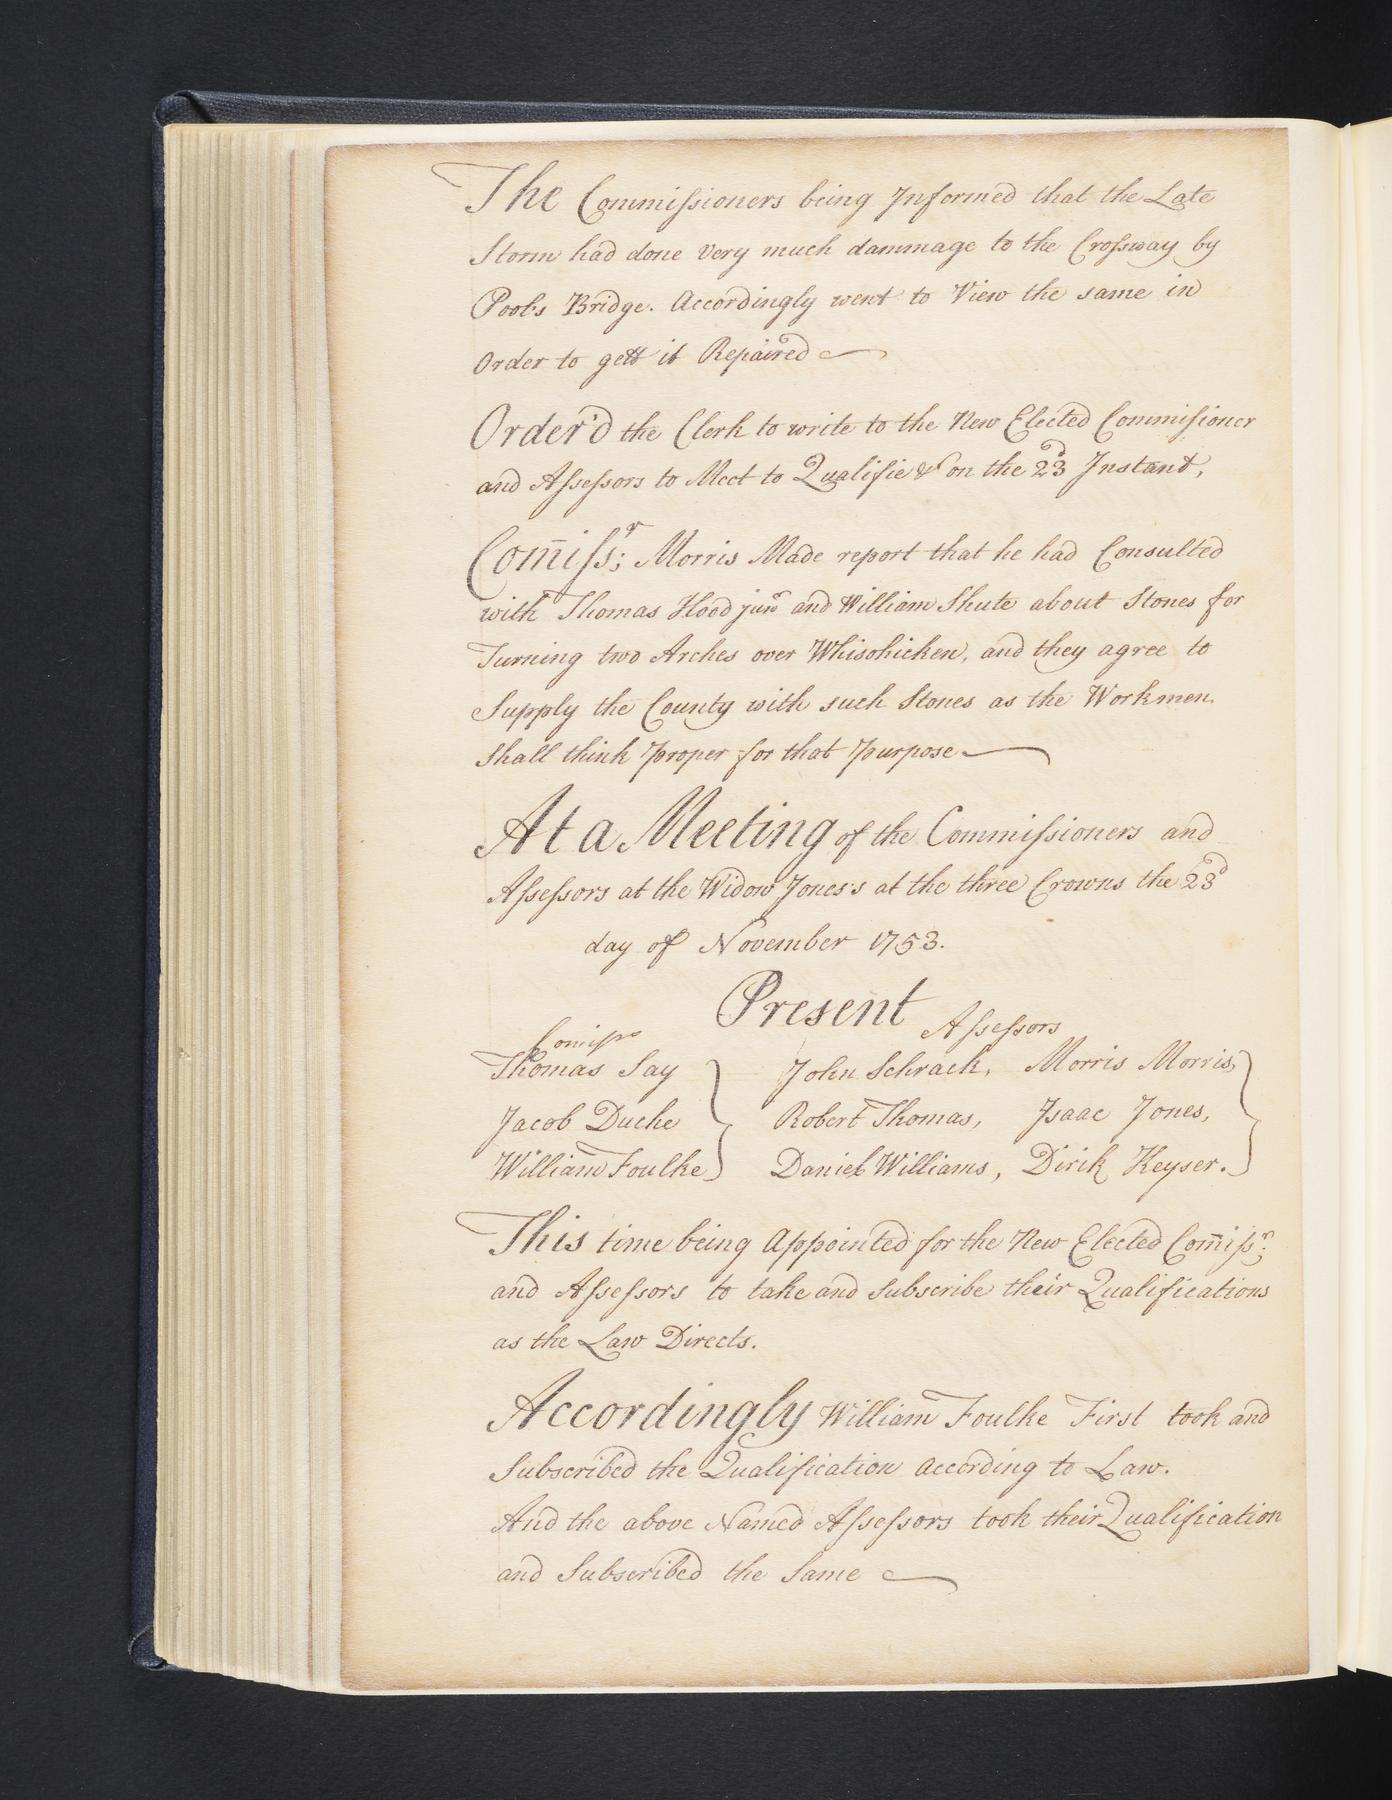 The Commissioners being Informed that the Late
Storm had done very much dammage to the Crossway by
Pool's Bridge. Accordingly went to View the same in
Order to gett it Repaired
Order'd the Clerk to write to the New Elected Commissioner
and Assessors to Meet to Qualifie &c on the 23d Instant,
Com̄issr; Morris Made report that he had Consulted
with Thomas Hood junr and William Shute about Stones for
Turning two Arches over Whisohicken, and they agree to
Supply the County with such Stones as the Workmen
Shall think proper for that purpose
At a Meeting of the Commissioners and
Assessors at the Widow Jones's at the three Crowns the 23d
day of November 1753.
Present
Comissrs Assessors
Thomas Say John Schrack, Morris Morris,
Jacob Duche Robert Thomas, Isaac Jones,
William Foulke Daniel Williams, Dirik Keyser.
This time being Appointed for the New Elected Com̄issr;
and Assessors to take and Subscribe their Qualifications
as the Law Directs.
Accordingly William Foulke First took and
Subscribed the Qualification according to Law.
And the above Named Assessors took their Qualification
and Subscribed the Same